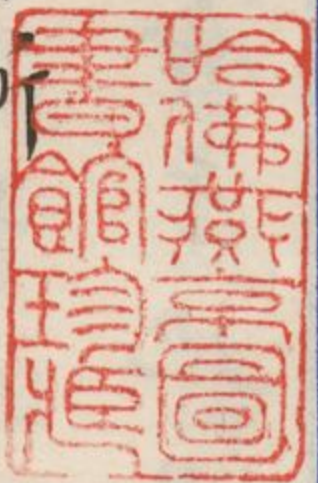 哈佛燕京圖
書館珍藏